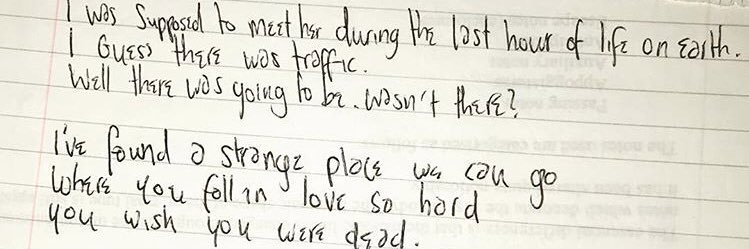 I was supposed to meet her during the last hour of life on earth.
I Guess there was traffic.
Well there was going to be. wasn't there?
I've found a strange place we can go
Where you fall in love so hard
you wish you were dead.